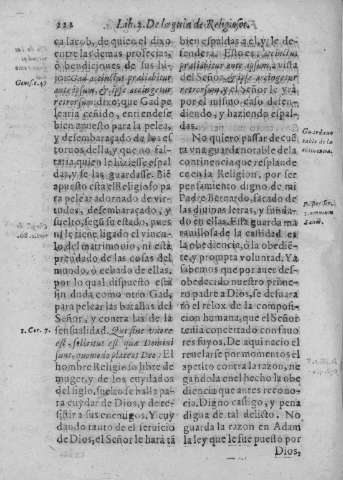 222 Lib. 2. De la guia de Religiosos.
ca Iacob, de quien el dixo
entre las demas profecias,
ò bendiciones de sus hi-
jos: Gad accinctus præliabitur
ante ipsum, & ipse accingetur
retrorsum: dixo, que Gad pe-
learia ceñido, entiendese
bien apuesto para la pelea,
y desembaraçado de vir-
tudes de alma, y que no fal-
taria, quien le hiziesse espal-
das, y se las guardasse. Biẽ
apuesto esta el Religioso pa
ra pelear adornado de vir-
tudes, desembaraçado, y
suelto, segũ su estado, pues
ni le tiene ligado el vincu-
lo del matrimonio, ni està
preñado de las cosas del
mundo, ò echado de ellas,
por lo qual dispuesto està
sin duda como otro Gad,
para pelear las batallas del
Señor, y contra las de la
sensualidad. Qui sine uxore
est, sollicitus est quæ Domini
sunt, quomodo placeat Deo. El
hombre Religioso libre de
muger, y de los cuydados
del siglo, suelto se halla pa-
ra cuydar de Dios, y de re-
sistir a sus enemigos. Y cuy
dando tanto de el seruicio
de Dios, el Señor le harà tã
Genes. c. 49
1. Cor. 7.
bien espaldas a el, y le de-
fendera. Esto es, accinctus
præliabitur ante ipsum, a vista
del Señor, & ipse accingetur
retrorsum, y el Señor le yrà
por el mismo caso defen-
diendo, y haziendo espal-
das.
No quiero passar de cuẽ
ta vna guarda notable de la
continencia que resplande-
ce en la Religion, por ser
pensamiento digno de mi
Padre Bernardo, sacado de
las diuinas letras, y funda-
do en ellas. Esta guarda ma
rauillosa de la castidad es
la obediẽcia, ò la obediẽ-
te, y prompta voluntad. Ya
sabemos que por auer des-
obedecido nuestro prime-
ro padre a Dios, se desatarõ
el relox de la composi-
cion humana, que el Señor
tenia concertado con fauo-
res suyos. De aqui nacio el
reuelarse por momentos el
apetito contra la razon, ne-
gandola en el hecho la obe-
diencia que antes recono-
cia. Digno castigo, y pena
digna de tal delicto. No
guarda la razon en Adam
la ley que le fue puesto por
Dios,
Guarda no
table de la